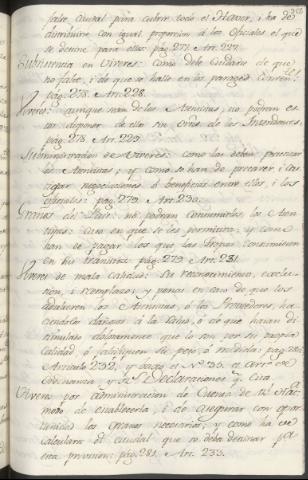 falte, caudal para cubrir todo el Haver, i ha de
distribuirse con igual proporcion á los oficiales el que
se destine para ellos pag. 277. Art. 227.
Subsistencia en Viveres: Como debe cuidarse de que
no falte, i de que se halle en los parages conveni.tes
pag. 278. Art. 228.
Viveres: aunque sean de los Asentistas, no podran es
tos disponer de ellos sin orn. de los Intendentes,
pag. 278. Art. 229.
Subministracion de Viveres: como la deben practicar
los Asentistas; y como se han de precaver, i cas
tigar negociaciones ó beneficios entre ellos, i los
oficiales: pag. 279. Art. 230.
Granos del Pais: no podran consumirlos los Asen
tistas: Caso en que se les permitira; y como se
han de pagar los que las tropas consumiesen
en sus transitos: pag. 279. Art. 231.
Viveres de mala calidad: Su reconocimiento, exclu-
sion, i reemplazo; y penas en caso de que los
adulteren los Asentistas, ó los Proveedores, ha
ciendolos dañosos á la salud, ó de que hayan di
simulado dolosamente que lo son por su propia
calidad ó falsifiquen su peso, ó medida; pag. 280
Articulo 232, y dicho el N.º 55. el Art.º de
Ordenanza y Rs. Declaraciones q. cita
Viveres por administracion de Cuenta de Rl. Hac.da
modo de establecerla, i de asegurar con opor
tunidad los granos necesarios; y como ha de
calcularse el caudal que se deba destinar p.a
esta provision: pag. 281. Art. 233.